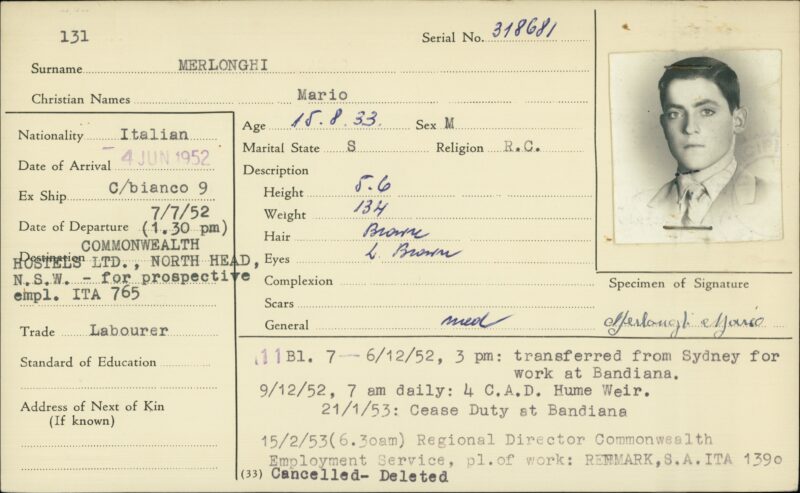 131
Serial No. 318681
Surname MERLONGHI
Christian Names Mario
Nationality Italian
Date of Arrival - 4 JUN 1952
Ex Ship C/bianco 9
Date of Departure 7/7/52 (1.30 pm)
Destination COMMONWEALTH
HOSTELS LTD., NORTH HEAD,
N.S.W. - for prospective
empl. ITA 765
Trade Labourer
Standard of Education
Address of Next of Kin
(If known)
Age 15.8.33. Sex M
Marital State S Religion R.C.
Description
Height 5.6
Weight 134
Hair Brown
Eyes L. Brown
Complexion
Scars
General med
Specimen of Signature
Merlonghi Mario
11 Bl. 7 - 6/12/52, 3 pm: transferred from Sydney for
work at Bandiana.
9/12/52, 7 am daily: 4 C.A.D. Hume Weir.
21/1/53: Cease Duty at Bandiana
15/2/53(6.30am) Regional Director Commonwealth
Employment Service, pl.of work: RENMARK,S.A.ITA 1390
(33) Cancelled- Deleted